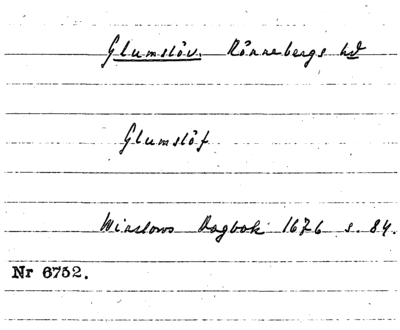 Glumslöv. Rönnebergs hd
Glumslöf
Winslows Dagbok 1676 s. 84.
Nr 6752.